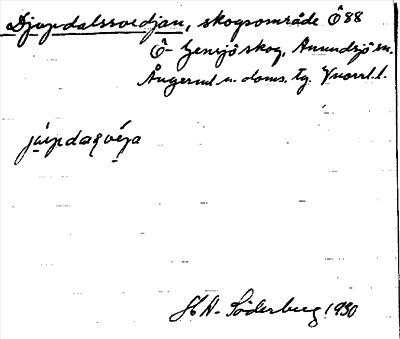 Djupdalssvedjan, skogsområde Ö 88
Ö- Gensjö skog, Anundsjö sn.
Ångerml. n. doms. tg. Vnorrl. l.
H A- Söderberg 1930